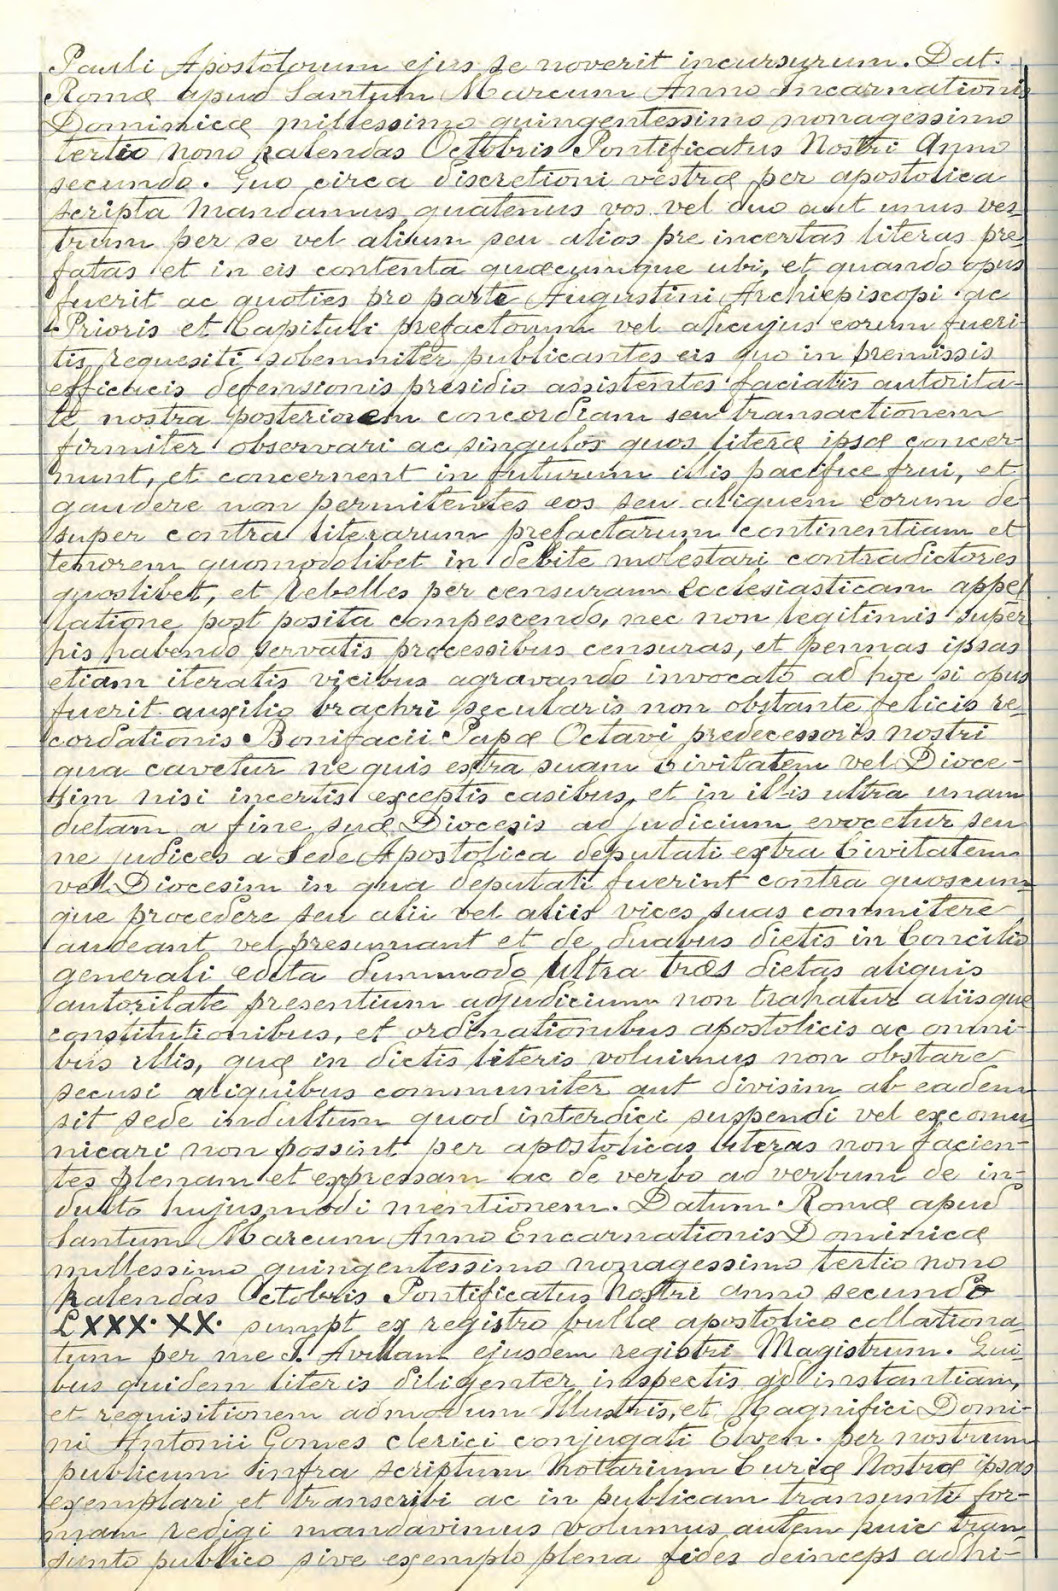 Pauli Apostolorum ejus se noverit incursurum. Dat.
Romæ apud Santum Marcum Anno incarnationis
Dominicæ millessimo quingentessimo nonagessimo
tertio nono kalendas Octobris Pontificatus Nostri Anno
secundo. Quo circa discretioni vestræ per apostolica
scripta Mandamus quatenus vos vel duo aut unus ves-
trum per se vel alium seu alios pre incertas literas pre-
fatas et in eis contenta quæcumque ubi, et quando opus
fuerit ac quoties pro parte Augustini Archiepiscopi ac
Prioris et Capituli prefactorum vel alicujus eorum fueri-
tis requesiti solemniter publicantes eis quo in premissis
efficacis defensionis presidio assistentes faciatis autorita-
te nostra posteriorem concordiam seu transactionem
firmiter observari ac singulos quos literæ ipsæ concer-
nunt, et concernent in futurum illis pacifice frui, et
gaudere non permitentes eos seu aliquem eorum de
super contra literarum prefactarum continentiam et
tenorem quomodolibet in debite molestari contradictores
quoslibet, et rebelles per censuram Ecclesiasticam appel
latione post posita compescendo, nec non legitimis super
his habendo servatis processibus censuras, et pennas ipsas
etiam iteratis vicibus agravando invocato ad hoc si opus
fuerit auxilio brachri secularis non obstante felicis re-
cordationis Bonifacii Papæ Octavi predecessoris nostri
qua cavetur ne quis extra suam Civitatem vel Dioce-
sim nisi incertis exceptis casibus, et in illis ultra unam
dietam a fine suæ Diocesis ad judicium evocetur seu
ne judices a Sede Apostolica deputati extra Civitatem
vel Diocesim in qua deputati fuerint contra quoscum-
que procedere seu alii vel aliis vices suas committere
audeant vel presumant et de duabus dietis in Concilio
generali edita dummodo ultra tres dietas aliquis
autoritate presentium adjudicium non trahatur aliisque
constitutionibus, et ordinationibus apostolicis ac omni-
bus illis, quæ in dictis literis voluimus non obstare
secusi aliquibus communiter aut divisim ab eadem
sit sede indultum quod interdici suspendi vel excomu
nicari non possint per apostolicas literas non facien-
tes plenam et expressam ac de verbo ad verbum de in-
dulto hujusmodi mentionem. Datum Romæ apud
Santum Marcum Anno Encarnationis Dominicæ
millessimo quingentessimo nonagessimo tertio nono
kalendas Octobris Pontificatus Nostri anno secundo
LXXX. XX. sumpt ex registro bullæ apostolico collationa-
tum per me J. Avillam ejusdem registri Magistrum. Qui-
bus quidem literis diligenter inspectis ad instantiam,
et requisitionem admodum Illustris, et Magnifici Domi-
ni Antonii Gomes clerici conjugati Elven. per nostrum
publicum infra scriptum Notarium Curiæ Nostræ ipsas
exemplari et transcribi ac in publicam transunti for-
mam redigi mandavimus volumus autem huic tran-
sunto publico sive exemplo plena fides deinceps adhi-